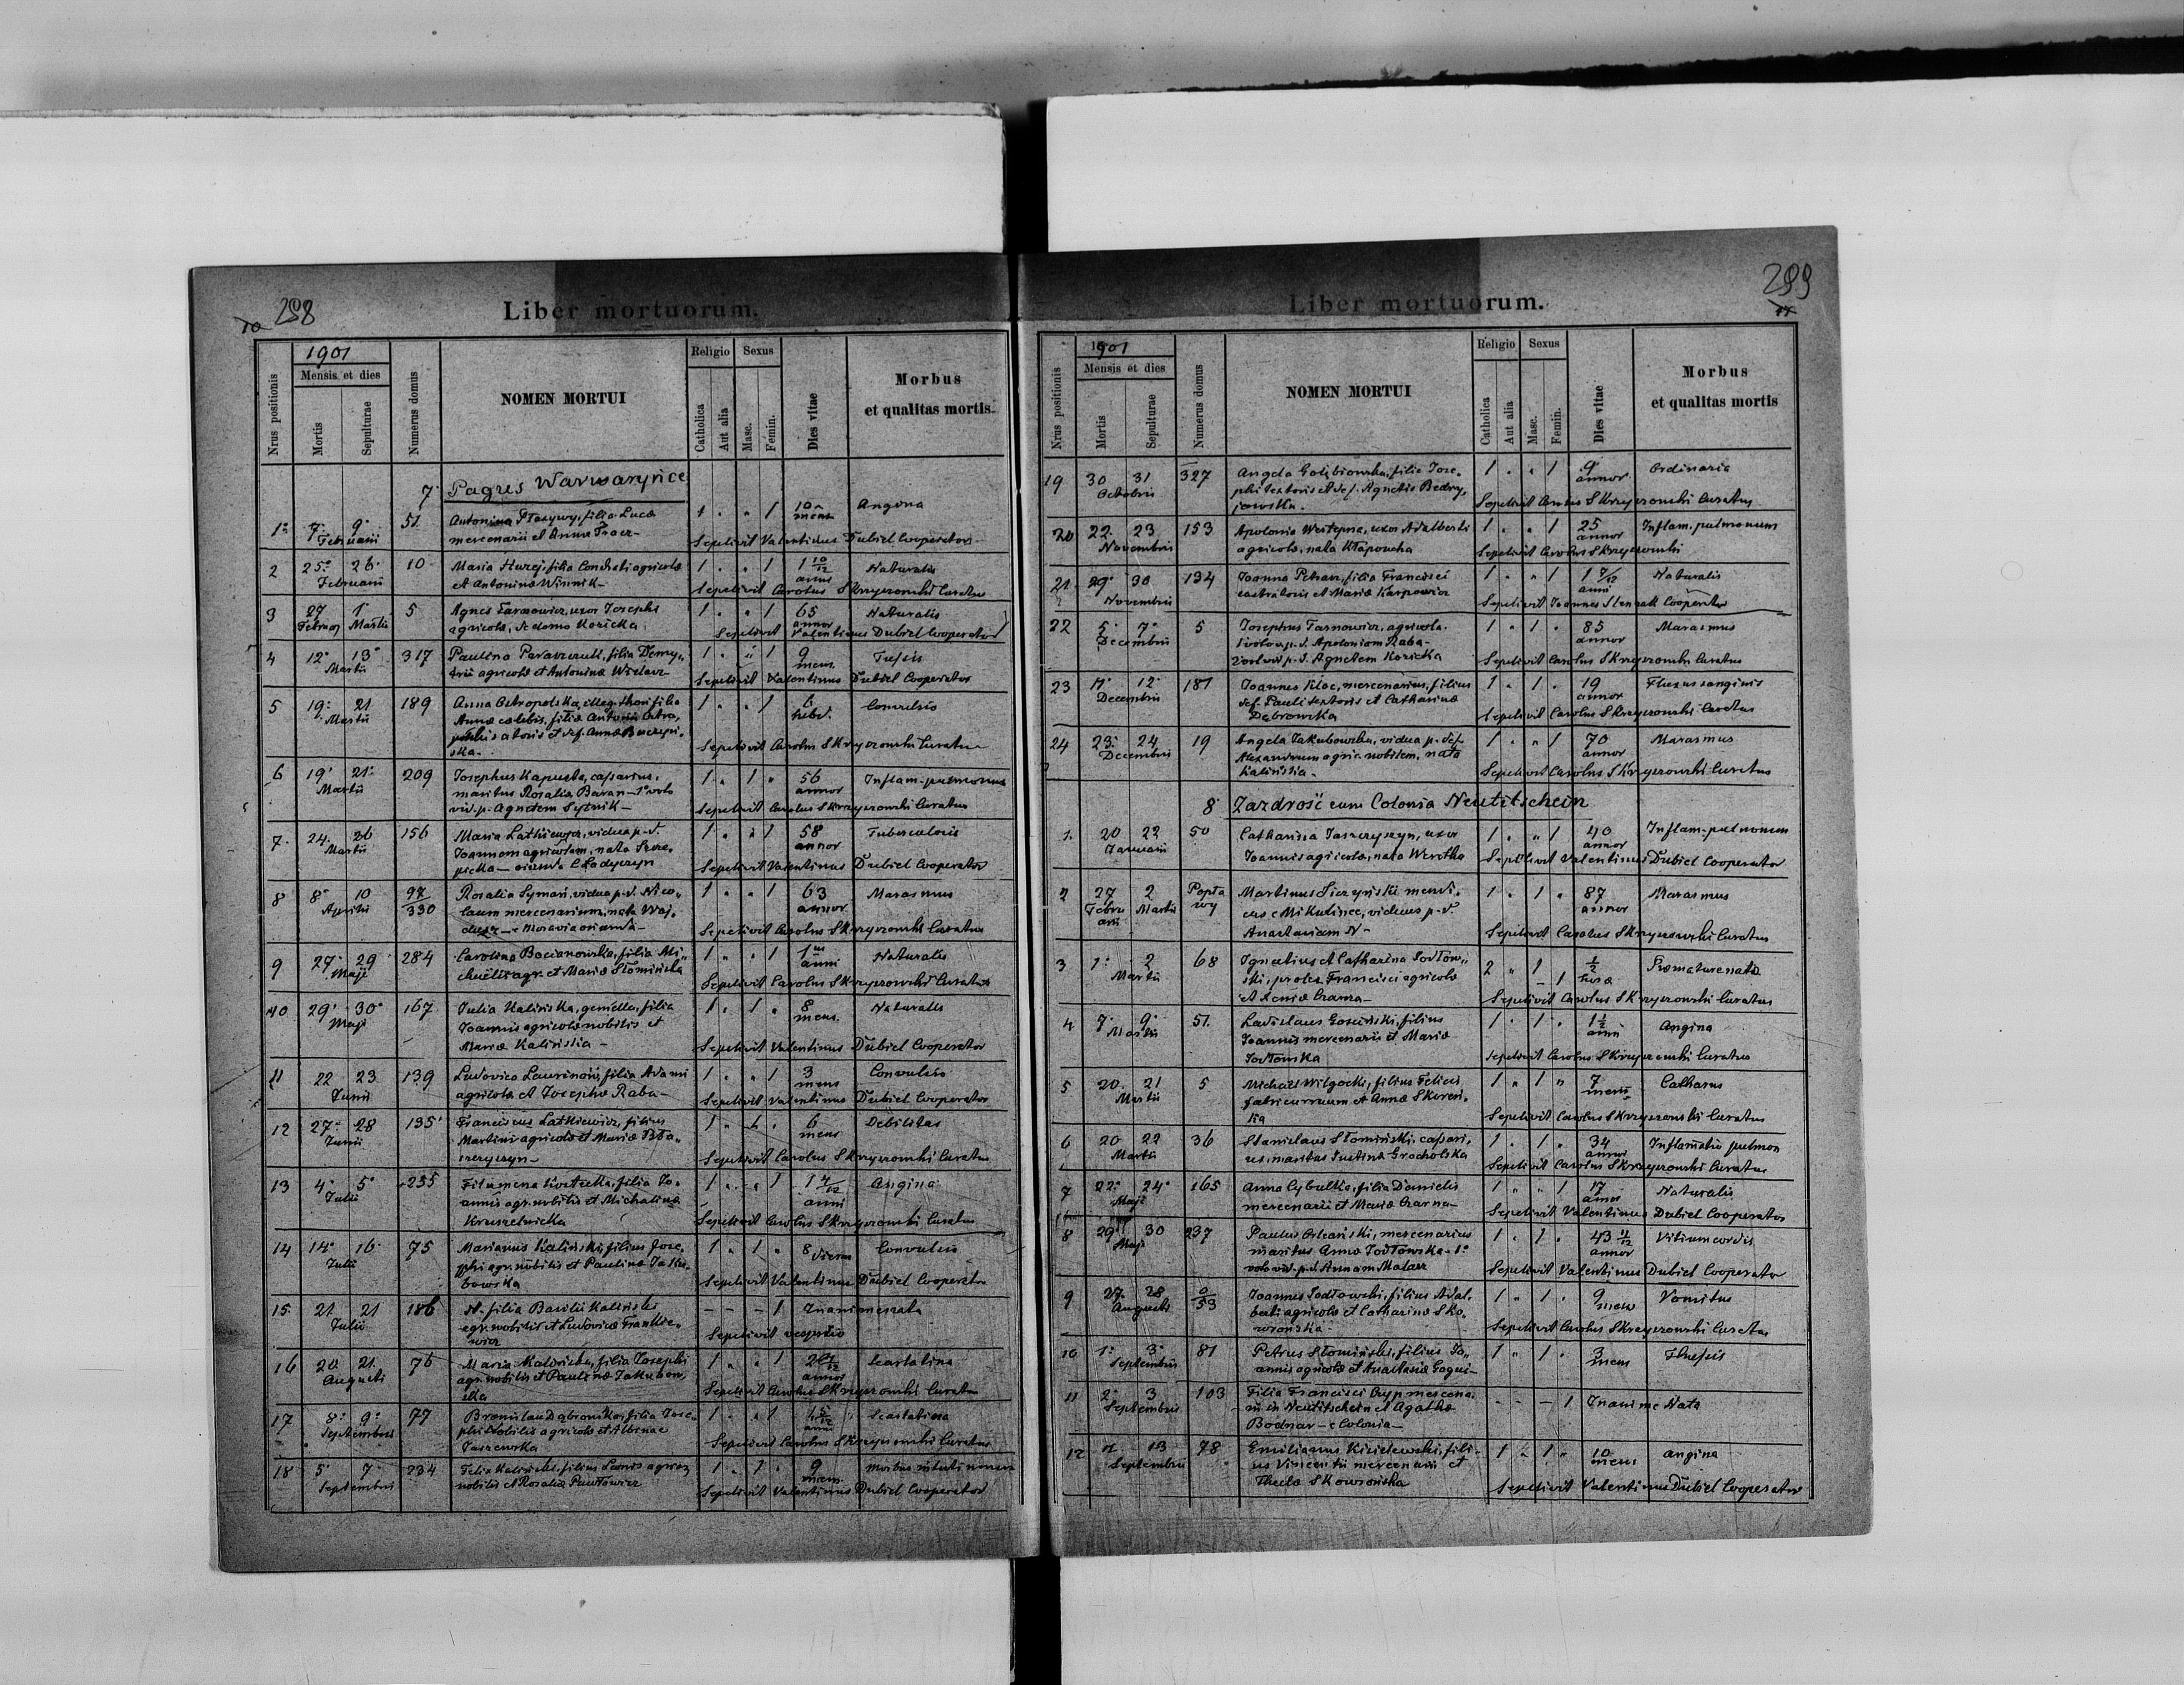 298
10
Liber mortuorum.
1901
Nrus positionis
Mensis et dies
Mortis
Sepulturae
Numerus domus
NOMEN MORTUI
Religio
Sexus
Catholica
Aut alia
Masc.
Femin.
Dies vitae
Morbus
et qualitas mortis.
7. Pagus Warwaryńce
1. 7. 9. 51 Antonina, filia Luca 1 " " 1 10 mens Angina
Februarii mercenarii et Anna
Sepelivit Valentinus Dubiel Cooperator
2 25. 26. 10 Maria, filia agricola 1 " " 1 1 10/12 Naturalis
Februarii et Antonina Winnik anni
Sepelivit Carolus Skrzyszowski Curatus
3 27 1 5 Agnes Tarnowicz, uxor Josephi 1 " " 1 65 Naturalis
Februar Martii agricola, de domo Kozicka annor
Sepelivit Valentinus Dubiel Cooperator
4 12. 13. 317 Paulina, filia Demy- 1 " " 1 9 Tussis
Martii trii agricola et Antonina mens.
Sepelivit Valentinus Dubiel Cooperator
5 19. 21 189 Anna Ostropolska, illeg. thori filia 1 " " 1 hebd. Convulsio
Martii Anna caelibis, filia Antonii
et def. Anna
ska
Sepelivit Carolus Skrzyszowski Curatus
6 19. 21. 209 Josephus Kapusta, 1 " 1 " 56 Inflam. pulmonum
Martii maritus Rosalia Baran - 1º voto annor
vid. p. Agnetem Sytnik
Sepelivit Carolus Skrzyszowski Curatus
7. 24. 26 156 Maria Latkiewicz, vidua p. d. 1 " " 1 58 Tuberculosis
Martii Joannem agricolam, nata annor
Sepelivit Valentinus Dubiel Cooperator
8 8. 10 97/330 Rosalia Symań, vidua p. d. Nico- 1 " " 1 63 Marasmus
Aprilis laum mercenarium, nata annor
e Moravia oriunda
Sepelivit Carolus Skrzyszowski Curatus
9 27. 29. 284 Carolina Bocianowska, filia Mi- 1 " " 1 1 Naturalis
Maji chaelis agr. et Maria Słomińska anni
Sepelivit Carolus Skrzyszowski Curatus
10 29. 30. 167 Julia Kalińska, gemella, filia 1 " 1 " 8 Naturalis
Maji Joannis agricola nobilis et mens.
Maria Kalińska
Sepelivit Valentinus Dubiel Cooperator
11 22 23 139 Ludovica, filia Adami 1 " " 1 3 Convulsio
Junii agricola et Josepha Raba mens
Sepelivit Valentinus Dubiel Cooperator
12 27. 28 135 Franciscus Latkiewicz, filius 1 " 1 " 6 Debilitas
Junii Martini agricola et Maria mens
Sepelivit Carolus Skrzyszowski Curatus
13 4. 5. 235 Filomena, filia Jo- 1 " " 1 1 4/12 Angina
Julii annis agr. nobilis et Michalina anni
Kruszelnicka
Sepelivit Carolus Skrzyszowski Curatus
14 14. 16. 75 Marianus Kaliński, filius Jose- 1 " 1 " 8 dierum Convulsio
Julii phi agr. nobilis et Paulina Jaku-
bowska
Sepelivit Valentinus Dubiel Cooperator
15. 21. 21 186 N. filia Basilii Kaliński - - - 1 Inanimes nata
Julii agr. nobilis et Ludovica Frankie-
wicz
Sepelivit vespillo
16 20. 21. 76 Maria, filia Josephi 1 " " 1 Scarlatina
Augusti agr. nobilis et Paulina Jakubow- annor
ska
Sepelivit Carolus Skrzyszowski Curatus
17 8. 9. 77 Bronislava Dąbrowska, filia Jose- 1 " " 1 4 5/12 Scarlatina
Septembris phi nobilis agricola et Albinae anni
Jaszewska
Sepelivit Carolus Skrzyszowski Curatus
18 5. 7. 234 Felix Kaliński, filius Leonis agricol. 1 " 1 " 9 Morbus intestinorum
Septembris nobilis et Rosalia Pawłowicz mens.
Sepelivit Valentinus Dubiel Cooperator
299
11
Liber mortuorum.
1901
Nrus positionis
Mensis et dies
Mortis
Sepulturae
Numerus domus
NOMEN MORTUI
Religio
Sexus
Catholica
Aut alia
Masc.
Femin.
Dies vitae
Morbus
et qualitas mortis
19 30 31 327 Angela Gołębiowska, filia Jose- 1 " " 1 9 Ordinaria
Octobris phi textoris et def. Agnetis annor
Sepelivit Carolus Skrzyszowski Curatus
20 22. 23 153 Apolonia, uxor Adalberti 1 " " 1 25 Inflam. pulmonum
Novembris agricola, nata Kłapoucha annor
Sepelivit Carolus Skrzyszowski
21. 29. 30 134 Joanna Petrasz, filia Francisci 1 " " 1 1 7/12 Naturalis
Novembris castratoris et Maria Karpowicz anni
Sepelivit Joannes Cooperator
22 5. 7. 5 Josephus Tarnowicz, agricola. 1 " 1 " 85 Marasmus
Decembris 1º voto p. d. Apoloniam Raba annor
2º vid. p. d. Agnetem Kozicka
Sepelivit Carolus Skrzyszowski Curatus
23 11. 12. 181 Joannes Kloc, mercenarius, filius 1 " 1 " 19 Fluxus sanguinis
Decembris def. Pauli textoris et Catharina annor
Dąbrowska
Sepelivit Carolus Skrzyszowski Curatus
24 23. 24 19 Angela Jakubowska, vidua p. def. 1 " " 1 70 Marasmus
Decembris Alexandrum agric. nobilem, nata annor
Kalińska
Sepelivit Carolus Skrzyszowski Curatus
8. Zazdrość cum Colonia Neutitschein
1. 20 22 50 Catharina, uxor 1 " " 1 40 Inflam. pulmonum
Januarii Joannis agricola, nata Weretka annor
Sepelivit Valentinus Dubiel Cooperator
2 27 2 Popła wy Martinus mendi- 1 " 1 " 87 Marasmus
Februarii Martii cus e Mikulince, viduus p. d. annor
Anastasiam N
Sepelivit Carolus Skrzyszowski Curatus
3 1. 2 68 Ignatius et Catharina Sodłow- 2 " 1 1/2 Præmature nata
Martii ski, proles Francisci agricola - 1 hora
et Xenia
Sepelivit Carolus Skrzyszowski Curatus
4 7. 9. 51 Ladislaus, filius 1 " 1 " 1 1/2 Angina
Martii Joannis mercenarii et Maria anni
Sodłowska
Sepelivit Carolus Skrzyszowski Curatus
5 20. 21 5 Michael Wilgocki, filius Felicis 1 " 1 " 7 Catharus
Martii fabri curruum et Anna mens.
Sepelivit Carolus Skrzyszowski Curatus
6 20 22 36 Stanislaus Słomiński, 1 " 1 " 34 Inflamatio pulmon
Martii maritus Justina Grocholska annor
Sepelivit Carolus Skrzyszowski Curatus
7 22. 24. 165 Anna Cybulka, filia Danielis 1 " " 1 17 Naturalis
Maji mercenarii et Maria Czarna annor
Sepelivit Valentinus Dubiel Cooperator
8 29. 30 237 Paulus, mercenarius 1 " 1 " 43 11/12 Vitium cordis
Maji maritus Anna Sodłowska - 1º annor
voto vid. p. d. Annam Malarz
Sepelivit Valentinus Dubiel Cooperator
9 27. 28 0/53 Joannes Sodłowski, filius Adal- 1 " 1 " 9 Vomitus
Augusti berti agricola et Catharina Sko- mens
wrońska
Sepelivit Carolus Skrzyszowski Curatus
10 1. 3. 81 Petrus Słomiński, filius Jo- 1 " 1 " 3 Thussis
Septembris annis agricola et Anastasia mens
11 2. 3 103 Filia Francisci mercena- - - - 1 Inanime Nata
Septembris rii in Neutitschein et Agatha
Bodnar - e Colonia
12 13 78 Emilianus, fili- 1 " 1 " 10 Angina
Septembris us Vincentii mercenarii et mens
Thecla Skowrońska
Sepelivit Valentinus Dubiel Cooperator